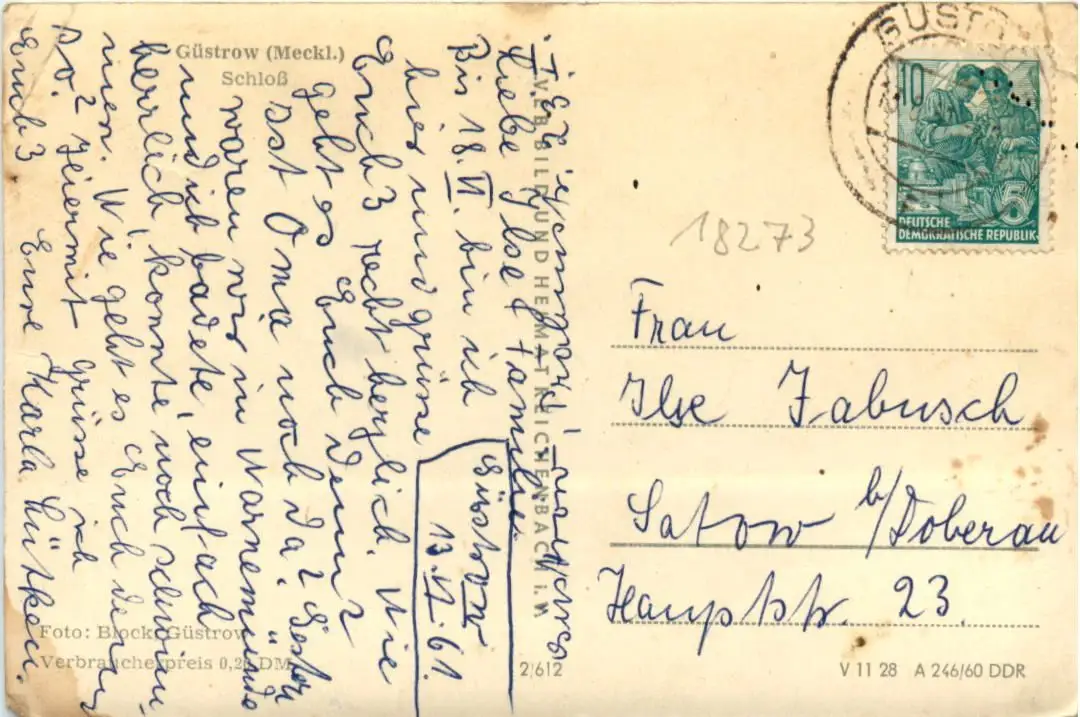 Güstrow (Meckl.)
Schloß
Güstrow
13.VI.61.
Liebe Ilse + Familie.
Bis 18. VI. bin ich
hier und grüße
Euch 3 recht herzlich. Wie
geht es Euch denn?
Ist Oma noch da? Gestern
waren wir in Warnemünde
und ich badete, einfach
herrlich, konnte noch schwim-
men. Wie geht es Euch denn
so? Hiermit grüße ich
Euch 3 Eure Karla Lütken.
VEB BILD UND HEIMAT REICHENBACH i. V.
Foto: Block, Güstrow
Verbraucherpreis 0,20 DM
2/612
GÜSTR
10
5
DEUTSCHE
DEMOKRATISCHE REPUBLIK
18273
Frau
Ilse Jabusch
Satow b/Doberan
Hauptstr. 23.
V 11 28 A 246/60 DDR